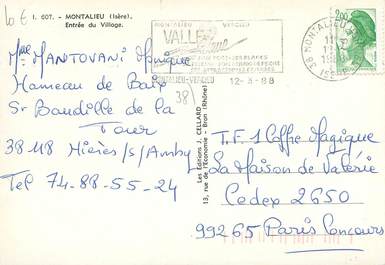 10€
I. 607. - MONTALIEU (Isère).
Entrée du Village.
MONTALIEU VERCIEU
VALLÉE
MONTALIEU-VERCIEU
12-3-88
38
38 MONTALIEU
ISERE
2,00
Mme MANTOVANI Monique
Hameau de Baix
St Baudille de la
Tour
38118 Hières/s/Amby
Tel 74-88-55-24
Les Editions J. CELLARD
13, rue de l'Economie - Bron (Rhône)
T.F.1 Coffre Magique
La Maison de Valérie
Cedex 2650
99265 Paris Concours